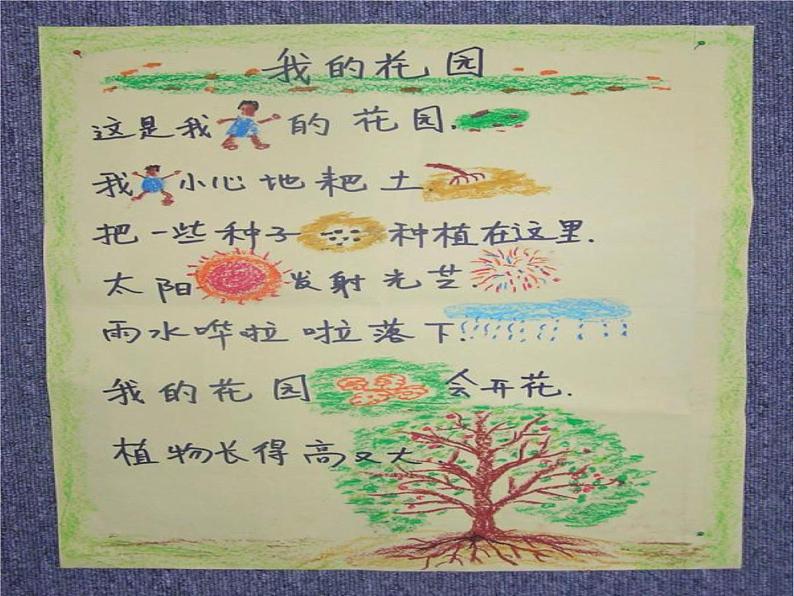 我的花园
这是我的花园.
我小心地耙土.
把一些种子种植在这里.
太阳发射光芒.
雨水哗啦啦落下.
我的花园会开花.
植物长得高又大.